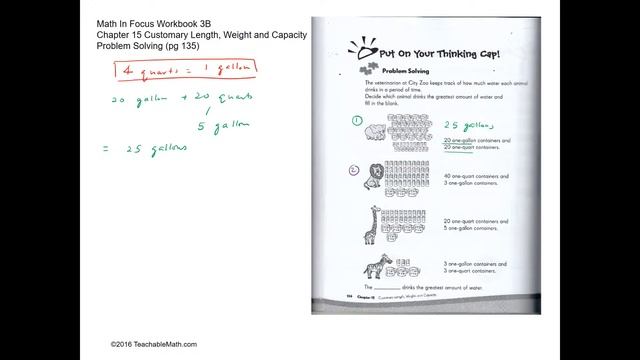 Math In Focus Workbook 3B
Chapter 15 Customary Length, Weight and Capacity
Problem Solving (pg 135)
4 quarts = 1 gallon
20 gallon + 20 quarts
5 gallon
= 25 gallons
©2016 TeachableMath.com
Put On Your Thinking Cap!
Problem Solving
The veterinarian at City Zoo keeps track of how much water each animal
drinks in a period of time.
Decide which animal drinks the greatest amount of water and
fill in the blank.
1
25 gallons
20 one-gallon containers and
20 one-quart containers.
2
40 one-quart containers and
3 one-gallon containers.
20 one-quart containers and
5 one-gallon containers.
3 one-gallon containers and
3 one-quart containers.
The ________ drinks the greatest amount of water.
Chapter 15 Customary Length, Weight and Capacity